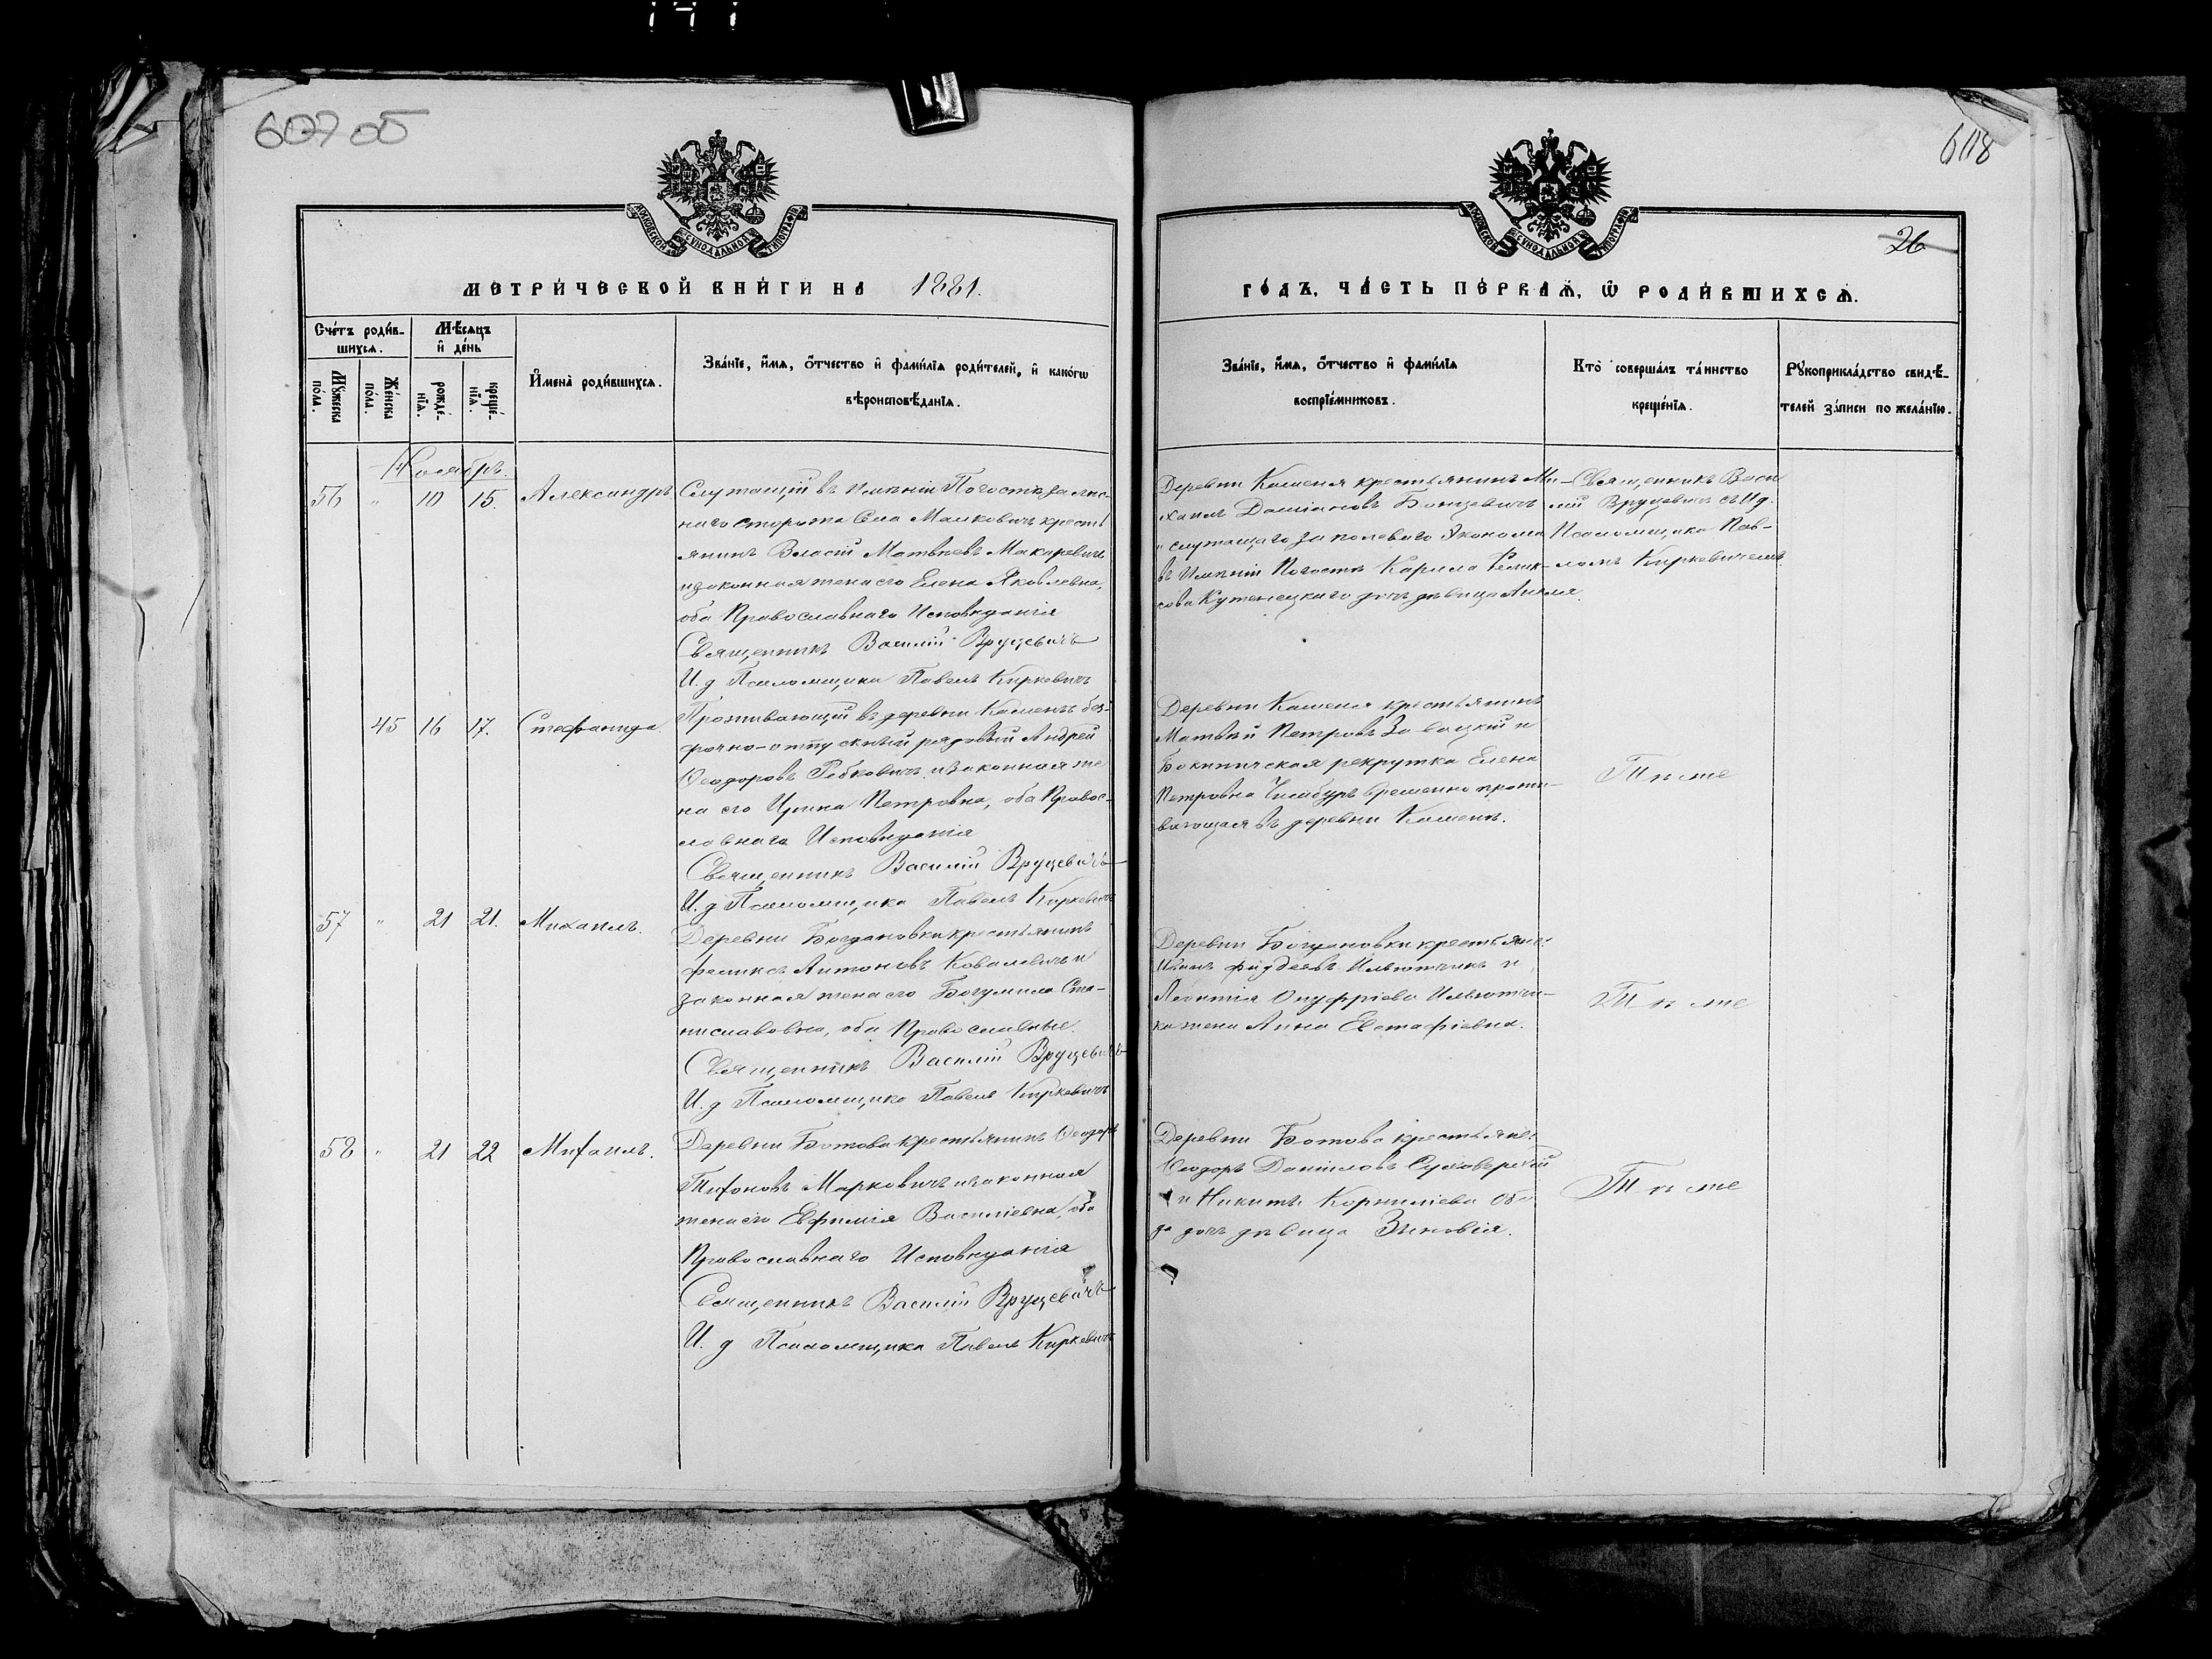 607 об
МОСКОВСКОЙ СУНОДАЛЬНОЙ ТИПОГРАФІИ
МЕТРИ́ЧЕСКОЙ КНИ́ГИ НА 1881.
Сче́тъ роди́вшихся.
Мѣ́сяцъ и҆ де́нь
Му́жеска по́ла.
Же́нска по́ла.
рожде́нїѧ.
креще́нїѧ.
И҆мена̀ роди́вшихсѧ.
Зва́нїе, и҆́мѧ, ѻ҆́тчество и҆ фами́лїѧ роди́телей, и҆ како́гѡ
вѣроисповѣ́данїѧ.
Ноябрь
56 " 10 15. Александръ
Служащій въ имѣніи Погостѣ за лѣс-
наго сторожа Села Малковичъ кресть
янинъ Власій Матвѣевъ Макаревичъ
и законная жена его Елена Яковлевна,
оба Православнаго Исповѣданія
Священникъ Василій Вруцевичъ
И. д Псаломщика Павелъ Киркевичъ
45 16 17. Стефанида.
Проживающій въ деревни Каменѣ без-
срочно-отпускный рядовый Андрей
Ѳеодоровъ Рабковичъ и законная же
на его Ирина Петровна, оба Правос-
лавнаго Исповѣданія
Священникъ Василій Вруцевичъ
И. д Псаломщика Павелъ Киркевичъ
57 " 21 21. Михаилъ.
Деревни Богдановки крестьянинъ
Феликсъ Антоновъ Ковалевичъ и
законная жена его Богумила Ста-
ниславовна, оба Православные.
Священникъ Василій Вруцевичъ
И. д Псаломщика Павелъ Киркевичъ
58 " 21 22 Михаилъ.
Деревни Ботова крестьянинъ Ѳеодоръ
Тихоновъ Марковичъ и законная
жена его Евфимія Василіевна, оба
Православнаго Исповѣданія
Священникъ Василій Вруцевичъ
И. д Псаломщика Павелъ Киркевичъ
608
26
МОСКОВСКОЙ СУНОДАЛЬНОЙ ТИПОГРАФІИ
ГО́ДЪ, ЧА́СТЬ ПЕ́РВАѦ, Ѡ҆ РОДИ́ВШИХСѦ.
Зва́нїе, и҆́мѧ, ѻ҆́тчество и҆ фами́лїѧ
воспрїе́мниковъ.
Кто̀ соверша́лъ та́инство
креще́нїѧ.
Рꙋкоприкла́дство свидѣ́-
телей за́писи по жела́нїю.
Деревни Каменя крестьянинъ Ми-
хаилъ Даміановъ
и служащаго за полеваго Эконома
въ Имѣніи Погостѣ Карла Фелик-
сова Кутенецкаго дочь дѣвица
Священникъ Васи
лій Вруцевичъ съ И.д.
Псаломщика Пав-
ломъ Киркевичемъ
Деревни Каменя крестьянинъ
Матвѣй Петровъ Завацкій и
рекрутка Елена
Петровна временно прожи-
вающая въ деревни Каменѣ.
Тѣ же
Деревни Богдановки крестьяне:
Ильютчикъ и
Леонтія Онуфріева Ильютчи-
ка жена Анна Евстафіевна.
Тѣ же
Деревни Ботова крестьяне:
Ѳеодоръ Даніиловъ Суховерхій
и Никиты Корниліева
дочь дѣвица Зиновія.
Тѣ же